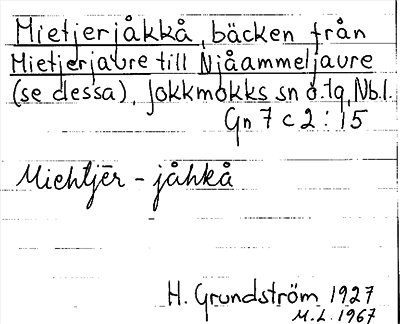 Mietjerjåkkå, bäcken från
Mietjerjaure till Njåammeljaure
(se dessa), Jokkmokks sn o. tg, Nb.l.
Gn 7 c 2 : 15
Miehtjēr - jåhkå
H. Grundström 1927
M.L. 1967